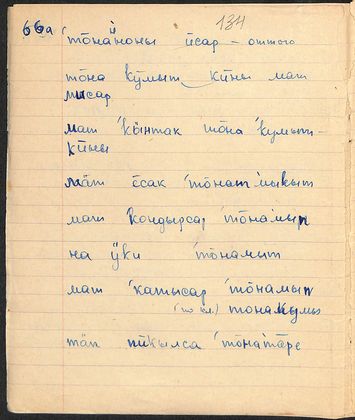 66а 134
'то̄на'йоны ӣсар – оттого
то̄на кӯмыт кӣны мат
мысар
мат 'кы̄нтак то̄на 'кумыт-
кӣны
ма̄т ёсак 'то̄нат'мыкыт
мат 'кондырсар 'то̄намып
на ӱки 'то̄намыт
мат 'катысар 'то̄намып
(то кл.) тонакумы
тап пӣкылса 'то̄на'та̄ре